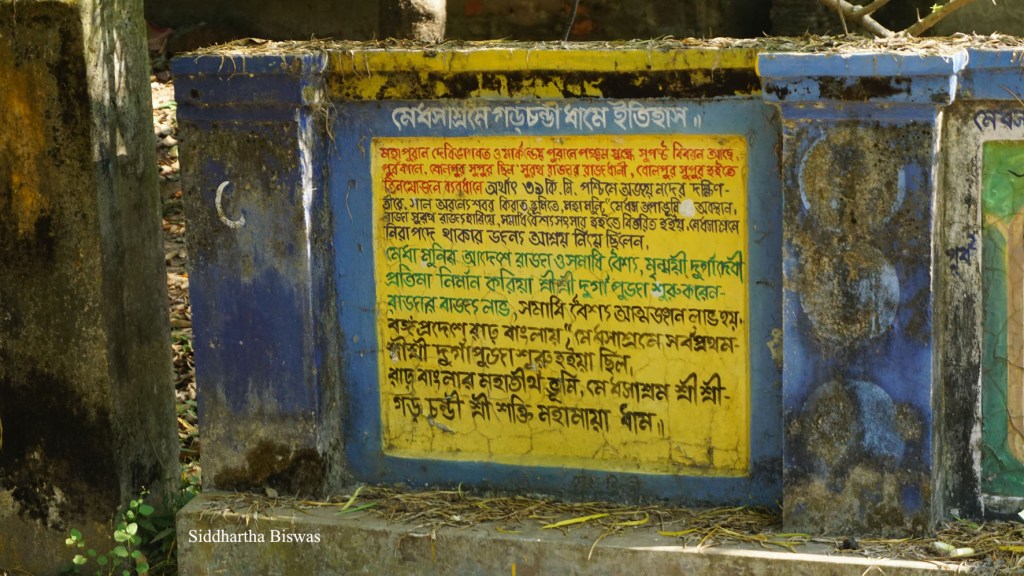 মেধসাশ্রমে গড়চন্ডী ধামে ইতিহাস॥
মহাপুরান দেবিভাগবত ও মার্কন্ডেয় পুরানে পঞ্চম স্কন্ধে সুস্পষ্ট বিবরন আছে
পূর্বকালে, বোলপুর সুপুর ছিল সুরথ রাজার রাজধানী, বোলপুর সুপুর হইতে
তিনযোজন ব্যবধানে অর্থাৎ ৩৯ কি.মি. পশ্চিমে অজয় নদের দক্ষিণ-
তীরে, শাল অরন্যে কিরাত ভূমিতে, অবস্থান,
রাজা সুরথ রাজ্য হারিয়ে, সমাধি বৈশ্য সংসার হইতে বিতারিত হইয়া মেধসাশ্রমে
নিরাপদে থাকার জন্যে আশ্রয় নিয়ে ছিলেন,
মেধা মুনির আদেশে রাজন ও সমাধি বৈশ্য, মৃন্ময়ী দুর্গাদেবী
প্রতিমা নির্মান করিয়া শ্রীশ্রী দুর্গা পুজা শুরু করেন-
রাজার রাজ্য লাভ, সমাধি বৈশ্য আত্মজ্ঞান লাভ হয়,
বঙ্গপ্রদেশে রাঢ় বাংলায় "মেধসাশ্রমে সর্বপ্রথম-
শ্রীশ্রী দুর্গাপুজা শুরু হইয়া ছিল,
রাঢ় বাংলার মহাতীর্থ ভূমি, মেধসাশ্রম শ্রীশ্রী-
গড় চন্ডী শ্রী শক্তি মহামায়া ধাম॥
মেধস
পূর্ব
Siddhartha Biswas